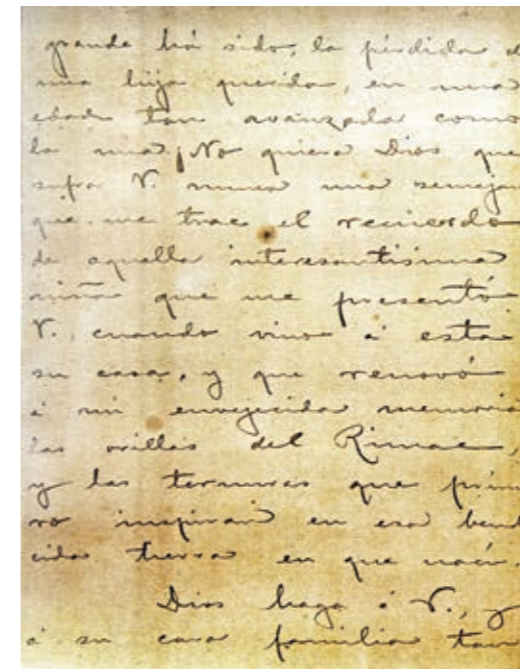 grande há sido, la pérdida d
una hija querida, en una
edad tan avanzada como
la mia ¡No quiera Dios que
sufra V. nunca una semejan
que me trae el recuerdo
de aquella interesantisima
niña que me presentó
V., cuando vino á esta
su casa, y que renovó
á mi envejecida memoria
las orillas del Rimac,
y las ternuras que prim
ro inspiran en esa bend
cida tierra en que nací.
Dios haga á V., y
á su cara familia tan